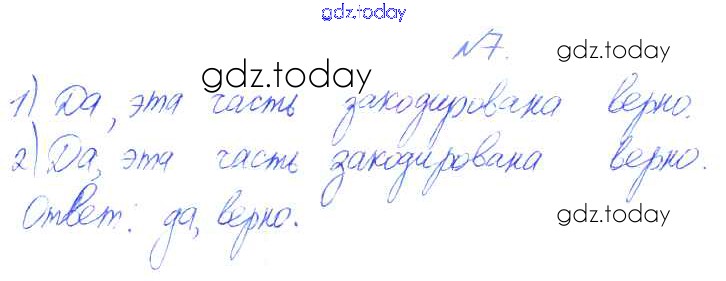 gdz.today
№7.
gdz.today
gdz.today
1) Да, эта часть закодирована верно.
2) Да, эта часть закодирована верно.
Ответ: да, верно.
gdz.today